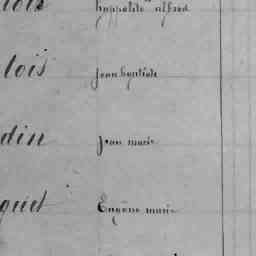 lois hyppolite alfred
lois jean baptiste
din jean marie
quet Eugène marie